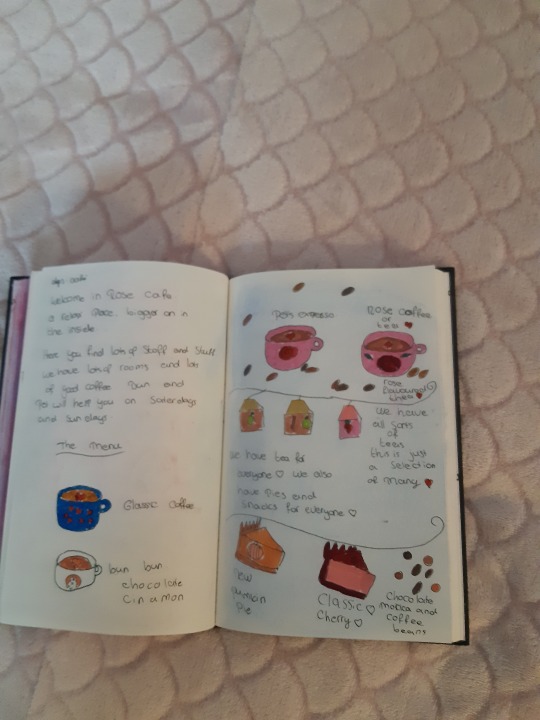 Welcome in Rose Cafe
a Place, bigger on in
the inside
Here you find lots of Stoff and Stuff
we have lots of rooms and lots
of good coffee Dun and
will help you on
and Sundays
The Menu
Classic Coffee
bun bun
chocolate
Cinamon
espresso
Rose coffee
or
tea
rose
flavoured
We have
all sorts
of
teas
this is just
a Selection
of many
We have tea for
everyone ♡ we also
have Pies and
Snacks for everyone ♡
Pie
Classic ♡
Cherry ♡
Chocolate
mocca and
coffee
beans